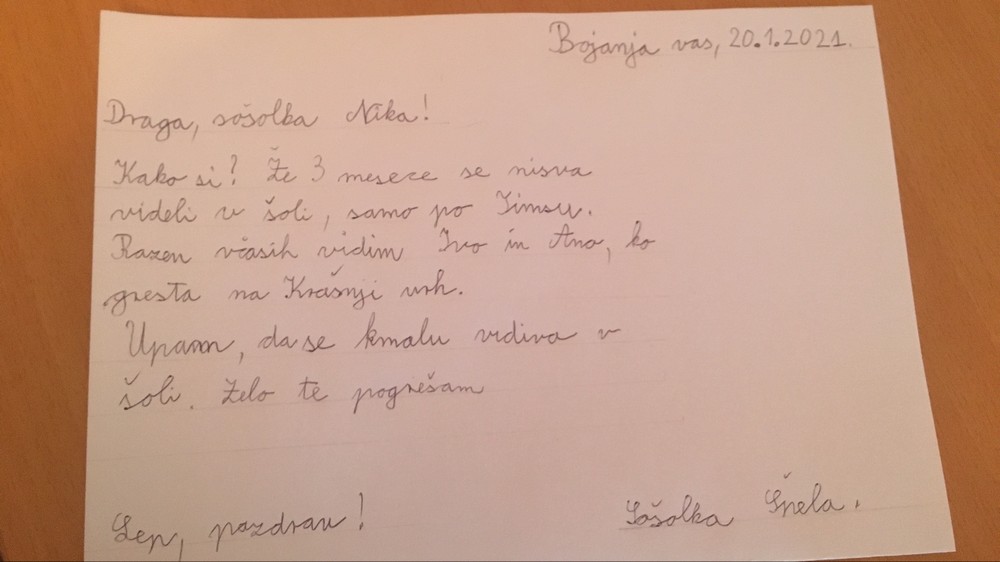 Bojanja vas, 20.1.2021.
Draga, sošolka Nika!
Kako si? Že 3 mesece se nisva
videli v šoli, samo po Timsu.
Razen včasih vidim Ivo in Ano, ko
gresta na Krašnji vrh.
Upam, da se kmalu vidiva v
šoli. Zelo te pogrešam
Lep, pozdrav!
Sošolka Špela.